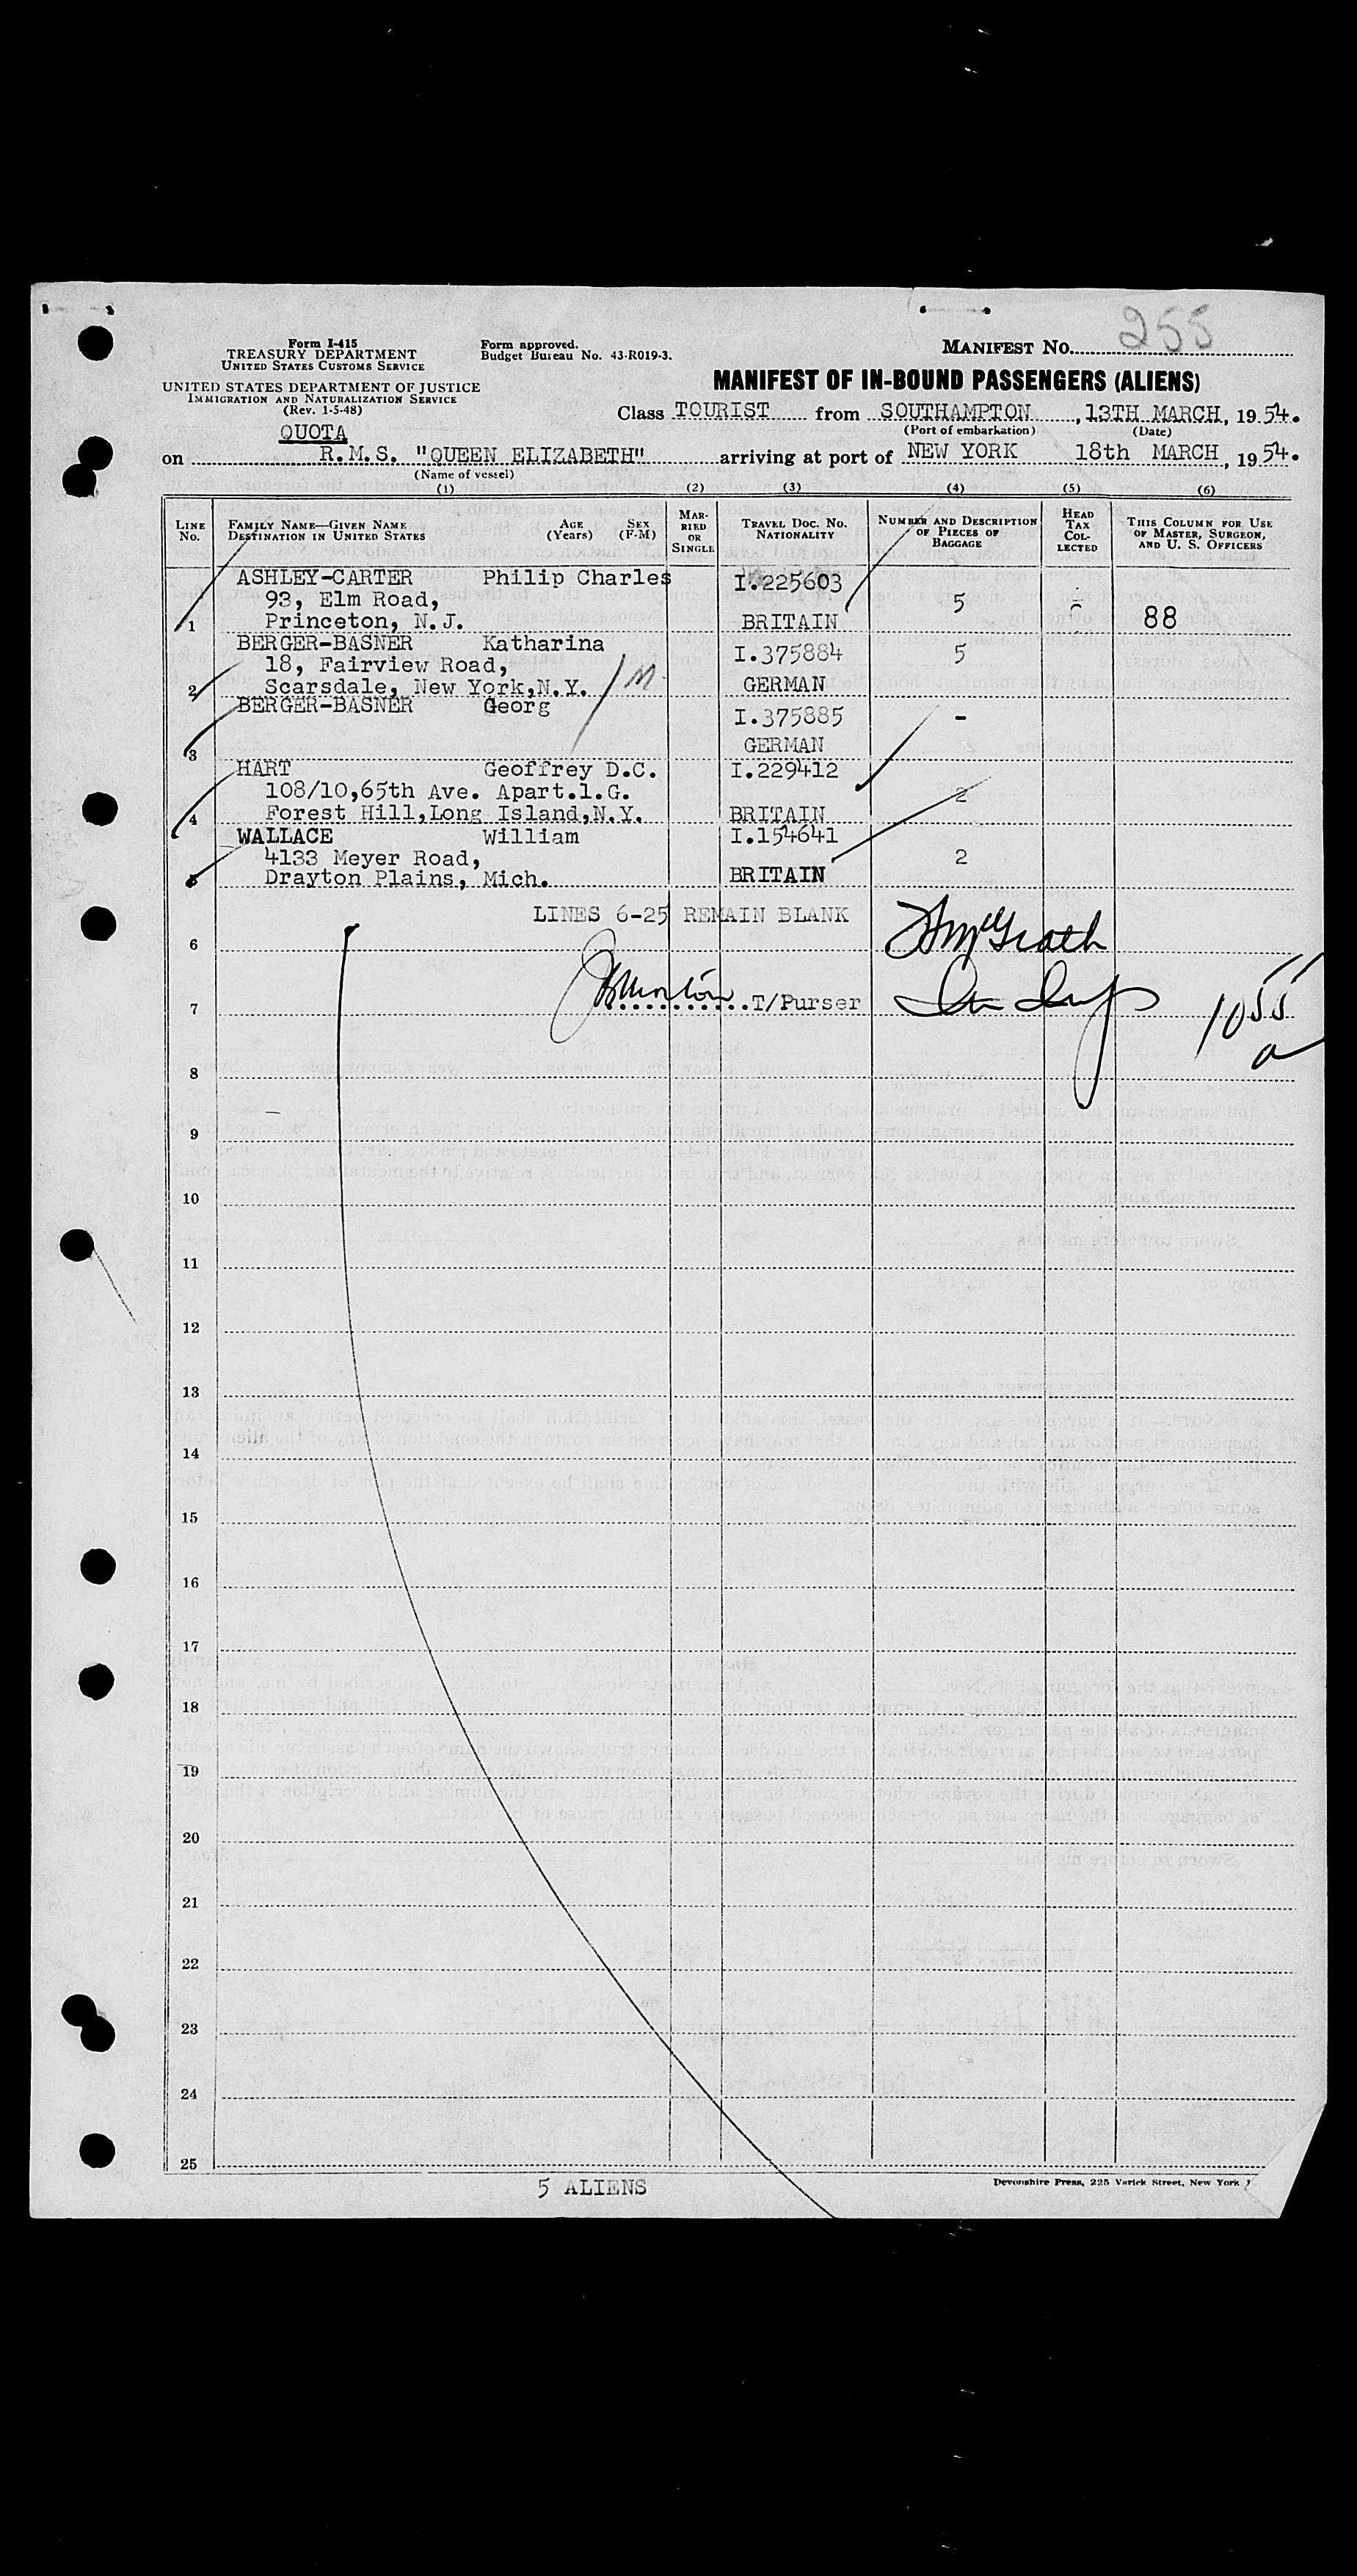 255
Form I-415
TREASURY DEPARTMENT
UNITED STATES CUSTOMS SERVICE
UNITED STATES DEPARTMENT OF JUSTICE
IMMIGRATION AND NATURALIZATION SERVICE
(Rev. 1-5-48)
Form approved.
Budget Bureau No. 43-R019-3.
MANIFEST NO.
MANIFEST OF IN-BOUND PASSENGERS (ALIENS)
Class TOURIST from SOUTHAMPTON, 13TH MARCH, 1954.
(Port of embarkation) (Date)
QUOTA
on R.M.S. "QUEEN ELIZABETH" arriving at port of NEW YORK 18th MARCH, 1954.
(Name of vessel)
(1) (2) (3) (4) (5) (6)
LINE NO. FAMILY NAME—GIVEN NAME DESTINATION IN UNITED STATES AGE (Years) SEX (F-M) MARRIED OR SINGLE TRAVEL DOC. NO. NATIONALITY NUMBER AND DESCRIPTION OF PIECES OF BAGGAGE HEAD TAX COLLECTED THIS COLUMN FOR USE OF MASTER, SURGEON, AND U. S. OFFICERS
ASHLEY-CARTER Philip Charles I.225603
93, Elm Road, 5
1 Princeton, N.J. BRITAIN 88
BERGER-BASNER Katharina I.375884 5
18, Fairview Road,
2 Scarsdale, New York,N.Y. M. GERMAN
BERGER-BASNER Georg I.375885 -
3 GERMAN
HART Geoffrey D.C. I.229412
108/10,65th Ave. Apart.1.G. 2
4 Forest Hill,Long Island,N.Y. BRITAIN
WALLACE William I.154641
4133 Meyer Road, 2
5 Drayton Plains, Mich. BRITAIN
LINES 6-25 REMAIN BLANK
6
7 T/Purser 1055
a
8
9
10
11
12
13
14
15
16
17
18
19
20
21
22
23
24
25
5 ALIENS
Devonshire Press, 225 Varick Street, New York